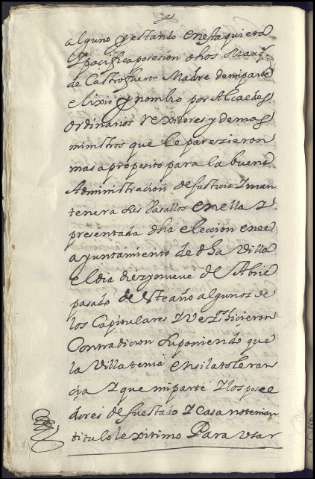 alguno y estando en esta quieta
y pacifica posesion dha s.ra Marq.sa
de Castrofuerte Madre de mi parte
elixio y nombro por Alcaldes
ordinarios rexidores y demas
ministros que le parezieron
mas a proposito para la buena
Administracion de Justicia y man
tener a sus Vasallos en ella y
presentada dha eleccion en el
ayuntamiento de dha Villa
el dia diez y nueve de Abril
pasado de este año algunos de
los Capitulares y Vez.s hicieron
Contradicion suponiendo que
la Villa tenia en si la toleran
cia y que mi parte y los posee
dores de su estado y Casa no tenian
titulo lexitimo Para Usar